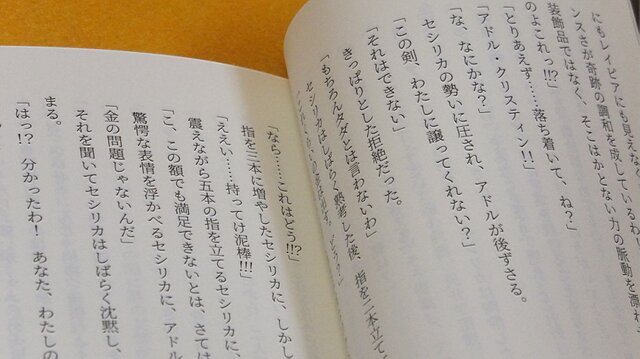 にもレイピアにも見えなく
ンスさが奇跡の調和を成しているわ
装飾品ではなく、そこはかとない力の脈動を漂わ
のよこれっ!!?」
「とりあえず……落ち着いて、ね?」
「アドル・クリスティン!!」
「な、なにかな?」
セシリカの勢いに圧され、アドルが後ずさる。
「この剣、わたしに譲ってくれない?」
「それはできない」
きっぱりとした拒絶だった。
「もちろんタダとは言わないわ」
セシリカはしばらく熟考した後、指を二本立て
「なら……これはどう!!?」
指を三本に増やしたセシリカに、しかし
「ええい……持ってけ泥棒!!!」
震えながら五本の指を立てるセシリカに、
「こ、この額でも満足できないとは、さては
驚愕な表情を浮かべるセシリカに、アドル
「金の問題じゃないんだ」
それを聞いてセシリカはしばらく沈黙し、
まる。
「はっ!? 分かったわ! あなた、わたしの